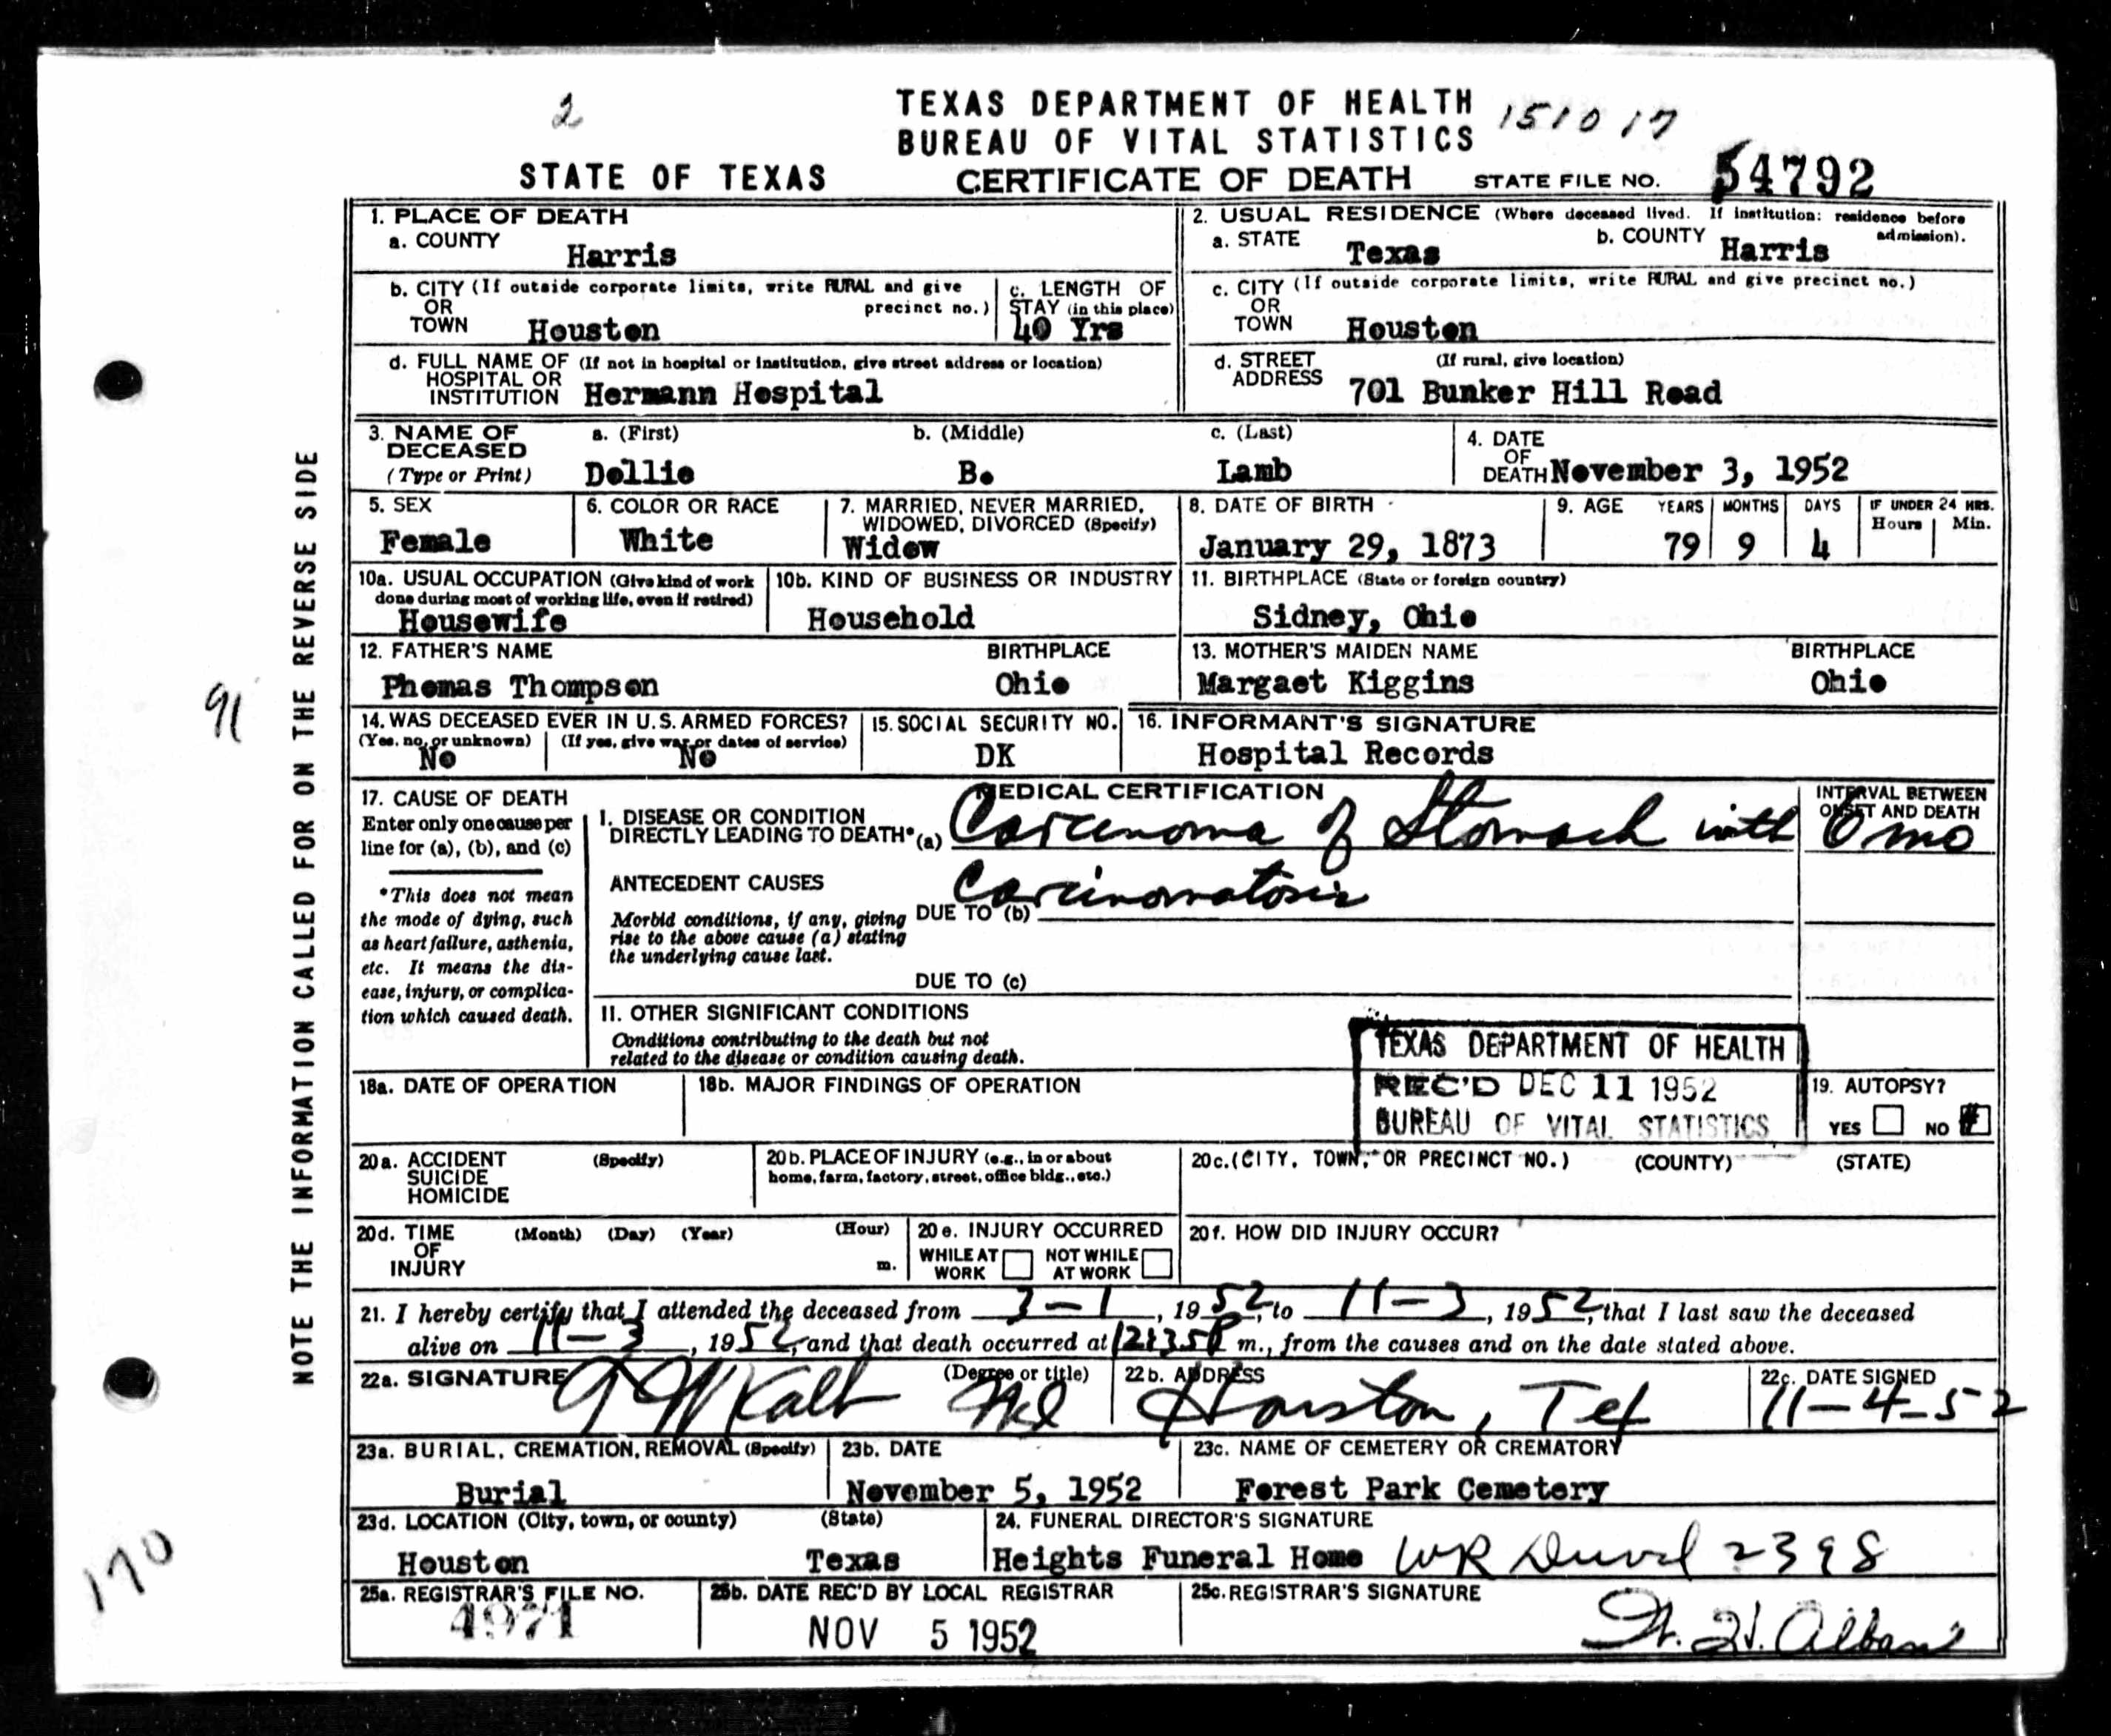 2
TEXAS DEPARTMENT OF HEALTH 151017
BUREAU OF VITAL STATISTICS
STATE OF TEXAS CERTIFICATE OF DEATH STATE FILE NO. 54792
NOTE THE INFORMATION CALLED FOR ON THE REVERSE SIDE
91
170
1. PLACE OF DEATH
a. COUNTY Harris
2. USUAL RESIDENCE (Where deceased lived. If institution: residence before admission).
a. STATE Texas b. COUNTY Harris
b. CITY (If outside corporate limits, write RURAL and give precinct no.)
OR
TOWN Houston
c. LENGTH OF
STAY (in this place)
40 Yrs
c. CITY (If outside corporate limits, write RURAL and give precinct no.)
OR
TOWN Houston
d. FULL NAME OF (If not in hospital or institution, give street address or location)
HOSPITAL OR
INSTITUTION Hermann Hospital
d. STREET (If rural, give location)
ADDRESS 701 Bunker Hill Road
3. NAME OF a. (First) b. (Middle) c. (Last)
DECEASED
(Type or Print) Dollie B. Lamb
4. DATE
OF
DEATH November 3, 1952
5. SEX
Female
6. COLOR OR RACE
White
7. MARRIED, NEVER MARRIED,
WIDOWED, DIVORCED (Specify)
Widow
8. DATE OF BIRTH
January 29, 1873
9. AGE YEARS MONTHS DAYS IF UNDER 24 HRS.
Hours Min.
79 9 4
10a. USUAL OCCUPATION (Give kind of work
done during most of working life, even if retired)
Housewife
10b. KIND OF BUSINESS OR INDUSTRY
Household
11. BIRTHPLACE (State or foreign country)
Sidney, Ohio
12. FATHER'S NAME BIRTHPLACE
Phomas Thompson Ohio
13. MOTHER'S MAIDEN NAME BIRTHPLACE
Margaet Kiggins Ohio
14. WAS DECEASED EVER IN U.S. ARMED FORCES?
(Yes, no, or unknown) (If yes, give war or dates of service)
No No
15. SOCIAL SECURITY NO.
DK
16. INFORMANT'S SIGNATURE
Hospital Records
17. CAUSE OF DEATH
Enter only one cause per
line for (a), (b), and (c)
*This does not mean
the mode of dying, such
as heart failure, asthenia,
etc. It means the dis-
ease, injury, or complica-
tion which caused death.
MEDICAL CERTIFICATION
INTERVAL BETWEEN
ONSET AND DEATH
I. DISEASE OR CONDITION
DIRECTLY LEADING TO DEATH* (a) Carcinoma of Stomach with 6 mo
ANTECEDENT CAUSES Carcinomatosis
Morbid conditions, if any, giving DUE TO (b)
rise to the above cause (a) stating
the underlying cause last.
DUE TO (c)
II. OTHER SIGNIFICANT CONDITIONS
Conditions contributing to the death but not
related to the disease or condition causing death.
TEXAS DEPARTMENT OF HEALTH
REC'D DEC 11 1952
BUREAU OF VITAL STATISTICS
18a. DATE OF OPERATION
18b. MAJOR FINDINGS OF OPERATION
19. AUTOPSY?
YES NO
20a. ACCIDENT (Specify)
SUICIDE
HOMICIDE
20b. PLACE OF INJURY (e.g., in or about
home, farm, factory, street, office bldg., etc.)
20c. (CITY, TOWN, OR PRECINCT NO.) (COUNTY) (STATE)
20d. TIME (Month) (Day) (Year) (Hour)
OF
INJURY m.
20e. INJURY OCCURRED
WHILE AT NOT WHILE
WORK AT WORK
20f. HOW DID INJURY OCCUR?
21. I hereby certify that I attended the deceased from 3-1, 1952, to 11-3, 1952, that I last saw the deceased
alive on 11-3, 1952, and that death occurred at 12:35P m., from the causes and on the date stated above.
22a. SIGNATURE (Degree or title) Md
22b. ADDRESS
Houston, Tex
22c. DATE SIGNED
11-4-52
23a. BURIAL, CREMATION, REMOVAL (Specify)
Burial
23b. DATE
November 5, 1952
23c. NAME OF CEMETERY OR CREMATORY
Forest Park Cemetery
23d. LOCATION (City, town, or county) (State)
Houston Texas
24. FUNERAL DIRECTOR'S SIGNATURE
Heights Funeral Home WR 2398
25a. REGISTRAR'S FILE NO.
4971
25b. DATE REC'D BY LOCAL REGISTRAR
NOV 5 1952
25c. REGISTRAR'S SIGNATURE